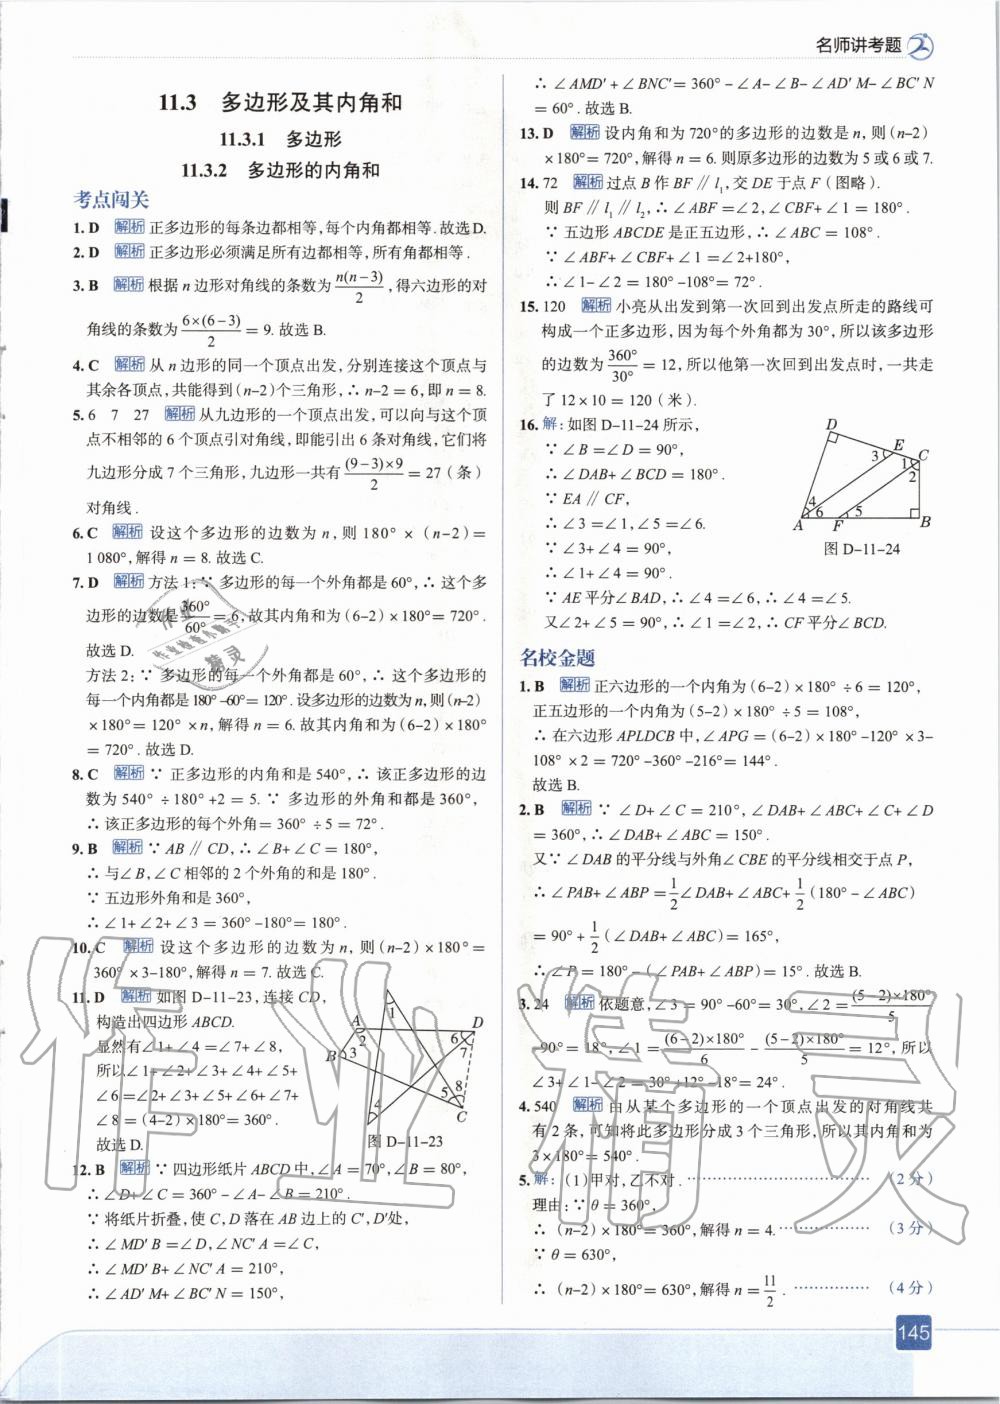 名师讲考题
11.3 多边形及其内角和
11.3.1 多边形
11.3.2 多边形的内角和
考点闯关
1. D 解析 正多边形的每条边都相等,每个内角都相等. 故选D.
2. D 解析 正多边形必须满足所有边都相等,所有角都相等.
3. B 解析 根据 n 边形对角线的条数为 n(n-3)/2 ,得六边形的对
角线的条数为 6×(6-3)/2 = 9. 故选 B.
4. C 解析 从 n 边形的同一个顶点出发,分别连接这个顶点与
其余各顶点,共能得到(n-2)个三角形,∴ n-2 = 6,即 n = 8.
5. 6 7 27 解析 从九边形的一个顶点出发,可以向与这个顶
点不相邻的 6 个顶点引对角线,即能引出 6 条对角线,它们将
九边形分成 7 个三角形,九边形一共有 (9-3)×9/2 = 27(条)
对角线.
6. C 解析 设这个多边形的边数为 n,则 180° ×(n-2)=
1 080°,解得 n = 8. 故选 C.
7. D 解析 方法 1:∵ 多边形的每一个外角都是 60°,∴ 这个多
边形的边数是 360°/60° = 6,故其内角和为(6-2)×180°= 720°.
故选 D.
方法 2:∵ 多边形的每一个外角都是 60°,∴ 这个多边形的
每一个内角都是 180°-60°= 120°. 设多边形的边数为 n,则(n-2)
×180°= 120° ×n,解得 n = 6. 故其内角和为(6-2)×180°
= 720°. 故选 D.
8. C 解析 ∵ 正多边形的内角和是 540°,∴ 该正多边形的边
数为 540° ÷180° +2 = 5. ∵ 多边形的外角和都是 360°,
∴ 该正多边形的每个外角= 360° ÷5 = 72°.
9. B 解析 ∵ AB∥CD,∴ ∠B+∠C = 180°,
∴ 与∠B,∠C 相邻的 2 个外角的和是 180°.
∵ 五边形外角和是 360°,
∴ ∠1+∠2+∠3 = 360°-180°= 180°.
10. C 解析 设这个多边形的边数为 n,则(n-2)×180°=
360° ×3-180°,解得 n = 7. 故选 C.
11. D 解析 如图 D-11-23,连接 CD,
构造出四边形 ABCD.
显然有∠1+∠4 =∠7+∠8,
所以∠1+∠2+∠3+∠4+∠5+
∠6 =∠2+∠3+∠5+∠6+∠7+
∠8 =(4-2)×180°= 360°.
故选 D.
A
B
C
D
1
2
3
4
5
6
7
8
图 D-11-23
12. B 解析 ∵ 四边形纸片 ABCD 中,∠A = 70°,∠B = 80°,
∴ ∠D+∠C = 360°-∠A-∠B = 210°.
∵ 将纸片折叠,使 C,D 落在 AB 边上的 C′,D′处,
∴ ∠MD′B =∠D,∠NC′A =∠C,
∴ ∠MD′B+∠NC′A = 210°,
∴ ∠AD′M+∠BC′N = 150°,
∴ ∠AMD′+∠BNC′= 360°-∠A-∠B-∠AD′M-∠BC′N
= 60°. 故选 B.
13. D 解析 设内角和为 720°的多边形的边数是 n,则(n-2)
×180°= 720°,解得 n = 6. 则原多边形的边数为 5 或 6 或 7.
14. 72 解析 过点 B 作 BF∥l₁,交 DE 于点 F(图略).
则 BF∥l₁∥l₂,∴ ∠ABF =∠2,∠CBF+∠1 = 180°.
∵ 五边形 ABCDE 是正五边形,∴ ∠ABC = 108°.
∵ ∠ABF+∠CBF+∠1 =∠2+180°,
∴ ∠1-∠2 = 180°-108°= 72°.
15. 120 解析 小亮从出发到第一次回到出发点所走的路线可
构成一个正多边形,因为每个外角都为 30°,所以该多边形
的边数为 360°/30° = 12,所以他第一次回到出发点时,一共走
了 12×10 = 120(米).
16. 解:如图 D-11-24 所示,
∵ ∠B =∠D = 90°,
∴ ∠DAB+∠BCD = 180°.
∵ EA∥CF,
∴ ∠3 =∠1,∠5 =∠6.
∵ ∠3+∠4 = 90°,
∴ ∠1+∠4 = 90°.
∵ AE 平分∠BAD,∴ ∠4 =∠6,∴ ∠4 =∠5.
又∠2+∠5 = 90°,∴ ∠1 =∠2,∴ CF 平分∠BCD.
D
E
C
3
1
2
4
6
5
A
F
B
图 D-11-24
名校金题
1. B 解析 正六边形的一个内角为(6-2)×180°÷6 = 120°,
正五边形的一个内角为(5-2)×180°÷5 = 108°,
∴ 在六边形 APLDCB 中,∠APG =(6-2)×180°-120° ×3-
108° ×2 = 720°-360°-216°= 144°.
故选 B.
2. B 解析 ∵ ∠D+∠C = 210°,∠DAB+∠ABC+∠C+∠D
= 360°,∴ ∠DAB+∠ABC = 150°.
又∵ ∠DAB 的平分线与外角∠CBE 的平分线相交于点 P,
∴ ∠PAB+∠ABP = 1/2 ∠DAB+∠ABC+ 1/2 (180°-∠ABC)
= 90°+ 1/2 (∠DAB+∠ABC)= 165°,
∴ ∠P = 180°-(∠PAB+∠ABP)= 15°. 故选 B.
3. 24 解析 依题意,∠3 = 90°-60°= 30°,∠2 = (5-2)×180°/5
-90°= 18°,∠1 = (6-2)×180°/6 - (5-2)×180°/5 = 12°,所以
∠3+∠1-∠2 = 30°+12°-18°= 24°.
4. 540 解析 由从某个多边形的一个顶点出发的对角线共
有 2 条,可知将此多边形分成 3 个三角形,所以其内角和为
3×180°= 540°.
5. 解:(1)甲对,乙不对. ………………………… (2 分)
理由:∵ θ = 360°,
∴ (n-2)×180°= 360°,解得 n = 4. ……………… (3 分)
∵ θ = 630°,
∴ (n-2)×180°= 630°,解得 n = 11/2 . …………… (4 分)
145
作业精灵